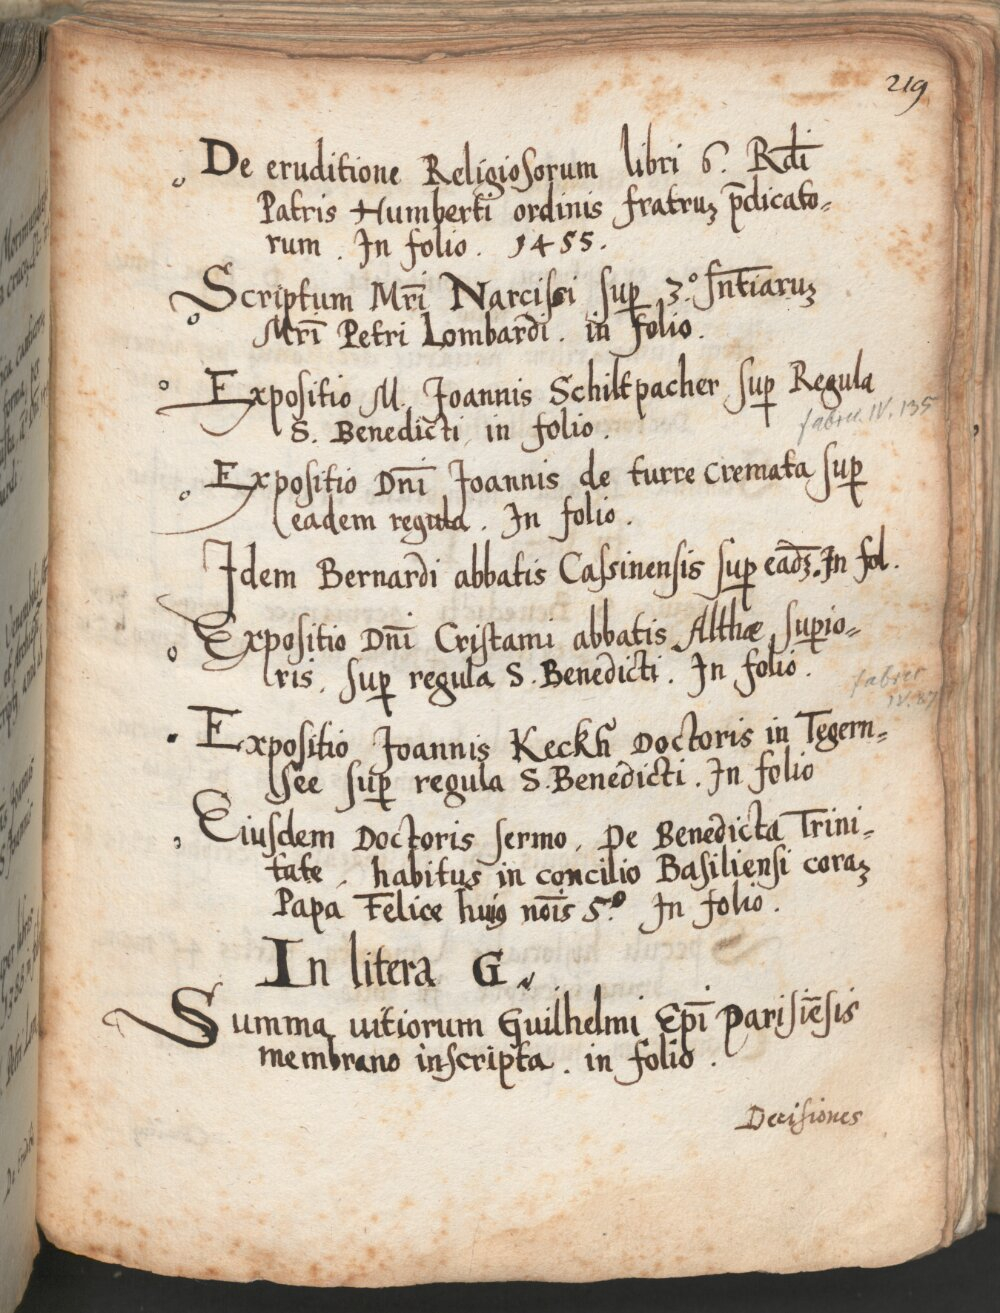 219
De eruditione Religiosorum libri 6. Rdi
Patris Humberti ordinis fratruꝫ p̄dicato-
rum. In folio. 1455.
Scriptum Mr̄i Narcissi sup 3.º sn̄tiaruꝫ
Mr̄i Petri Lombardi. in folio.
Expositio M. Joannis Schiltpacher sup Regula
S. Benedicti in folio.
fabric. IV. 135
Expositio Dn̄i Joannis de turre cremata sup
eadem regula. In folio.
Idem Bernardi abbatis Cassinensis sup eādꝫ. In fol.
Expositio Dn̄i Cristami abbatis Althæ supio-
ris. sup regula S. Benedicti. In folio.
fabric
IV. 87
Expositio Joannis Keckh̄ Doctoris in Tegern-
See sup regula S. Benedicti. In folio
Eiusdem Doctoris sermo. De Benedicta Trini-
tate. habitus in concilio Basiliensi coraꝫ
Papa Felice huiꝯ nōis 5.º In folio.
In litera G.
Summa uitiorum Guilhelmi Ep̄i Parisiēsis
membrano inscripta. in folio.
Decisiones